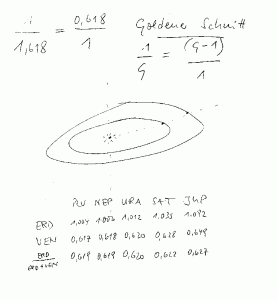 1/1,618 = 0,618/1
Goldener Schnitt
1/G = (G-1)/1
PLU NEP URA SAT JUP
ERD 1,004 1,006 1,012 1,035 1,092
VEN 0,617 0,618 0,620 0,628 0,649
ERD/ERD+VEN 0,619 0,619 0,620 0,622 0,627